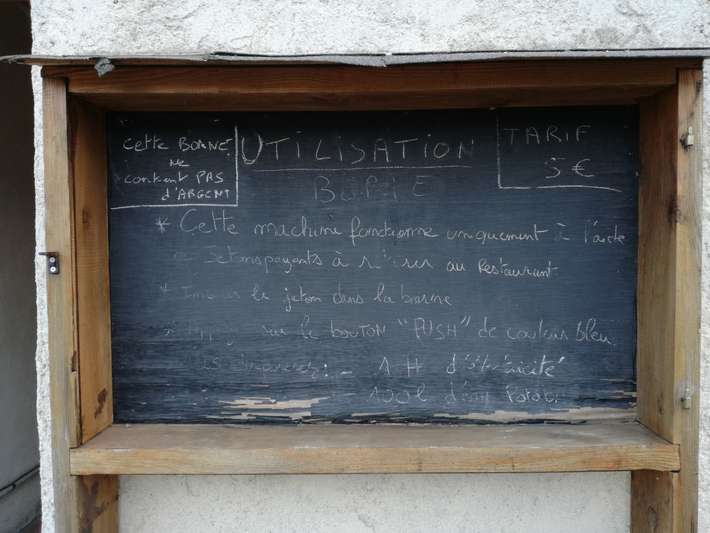 Cette BORNE
ne
contient PAS
d'ARGENT
UTILISATION
BORNE
TARIF
5 €
* Cette machine fonctionne uniquement à l'aide
Jetons payants à au Restaurant
* le jeton dans la borne
* sur le bouton "PUSH" de couleur bleu
- 1 H d'électricité
- 100l d'eau Potable